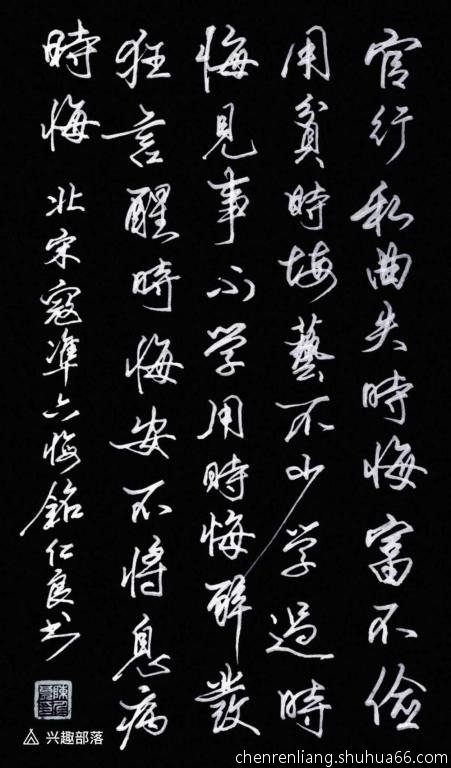 官行私曲失時悔富不儉
用貧時悔藝不少学過時
悔見事不学用時悔醉發
狂言醒時悔安不将息病
時悔
北宋寇準六悔銘仁良书
兴趣部落
chenrenliang.shuhua66.com